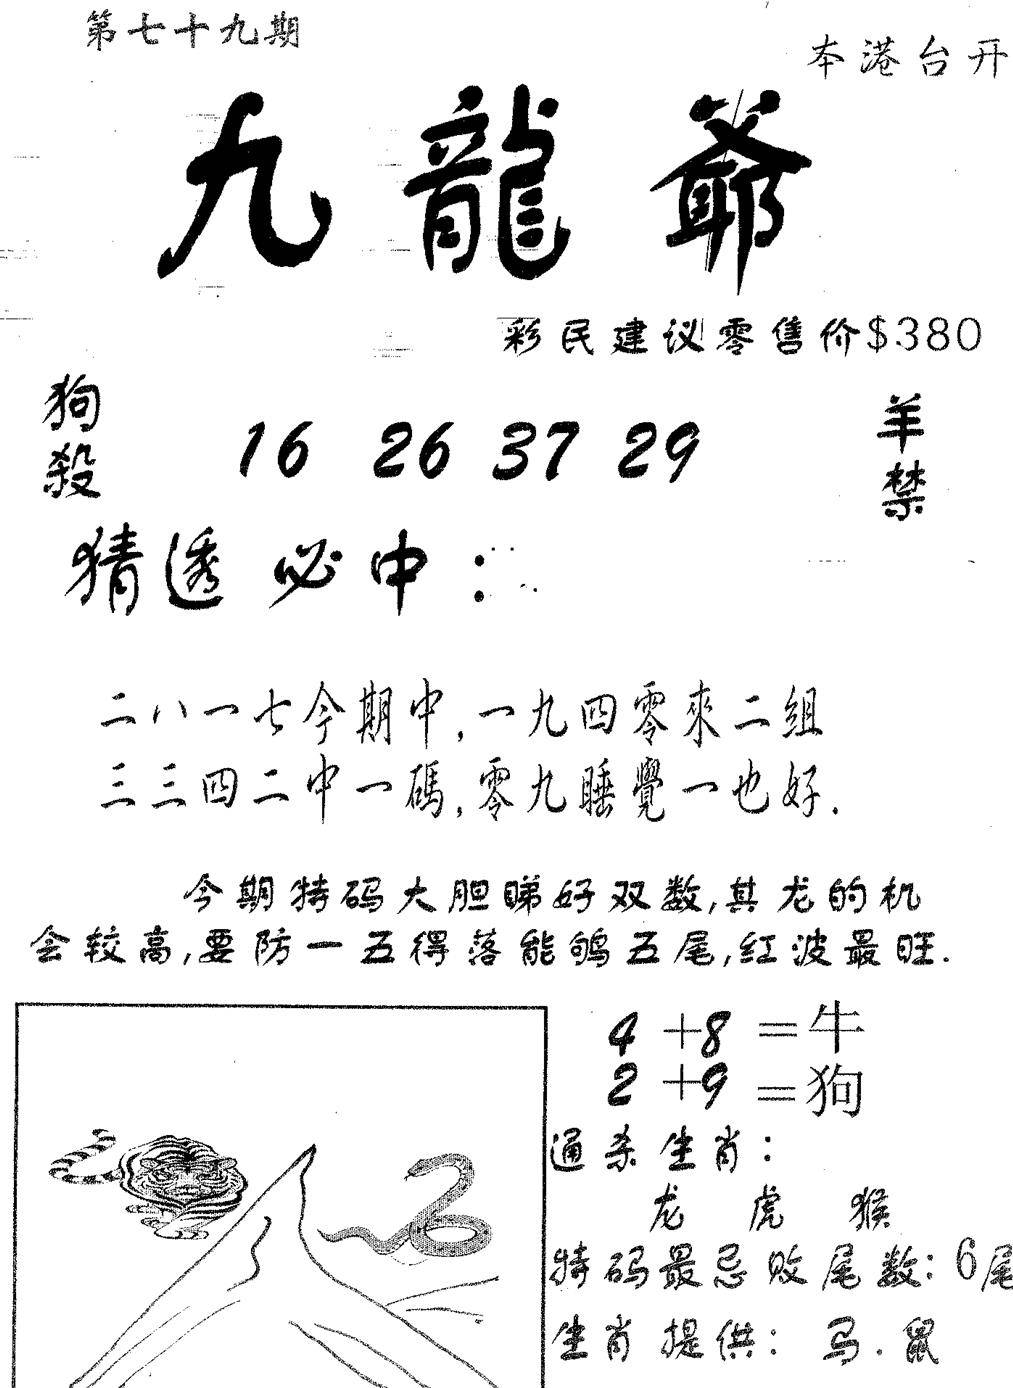 第七十九期
本港台开
九龍爺
彩民建议零售价$380
狗殺
16 26 37 29
羊禁
猜透必中：
二八一七今期中,一九四零來二组
三三四二中一碼,零九睡覺一也好.
今期特码大胆睇好双数,其龙的机
会较高,要防一五得落能鸲五尾,红波最旺.
4+8=牛
2+9=狗
通杀生肖：
龙 虎 猴
特码最忌败尾数：6尾
生肖提供：马.鼠